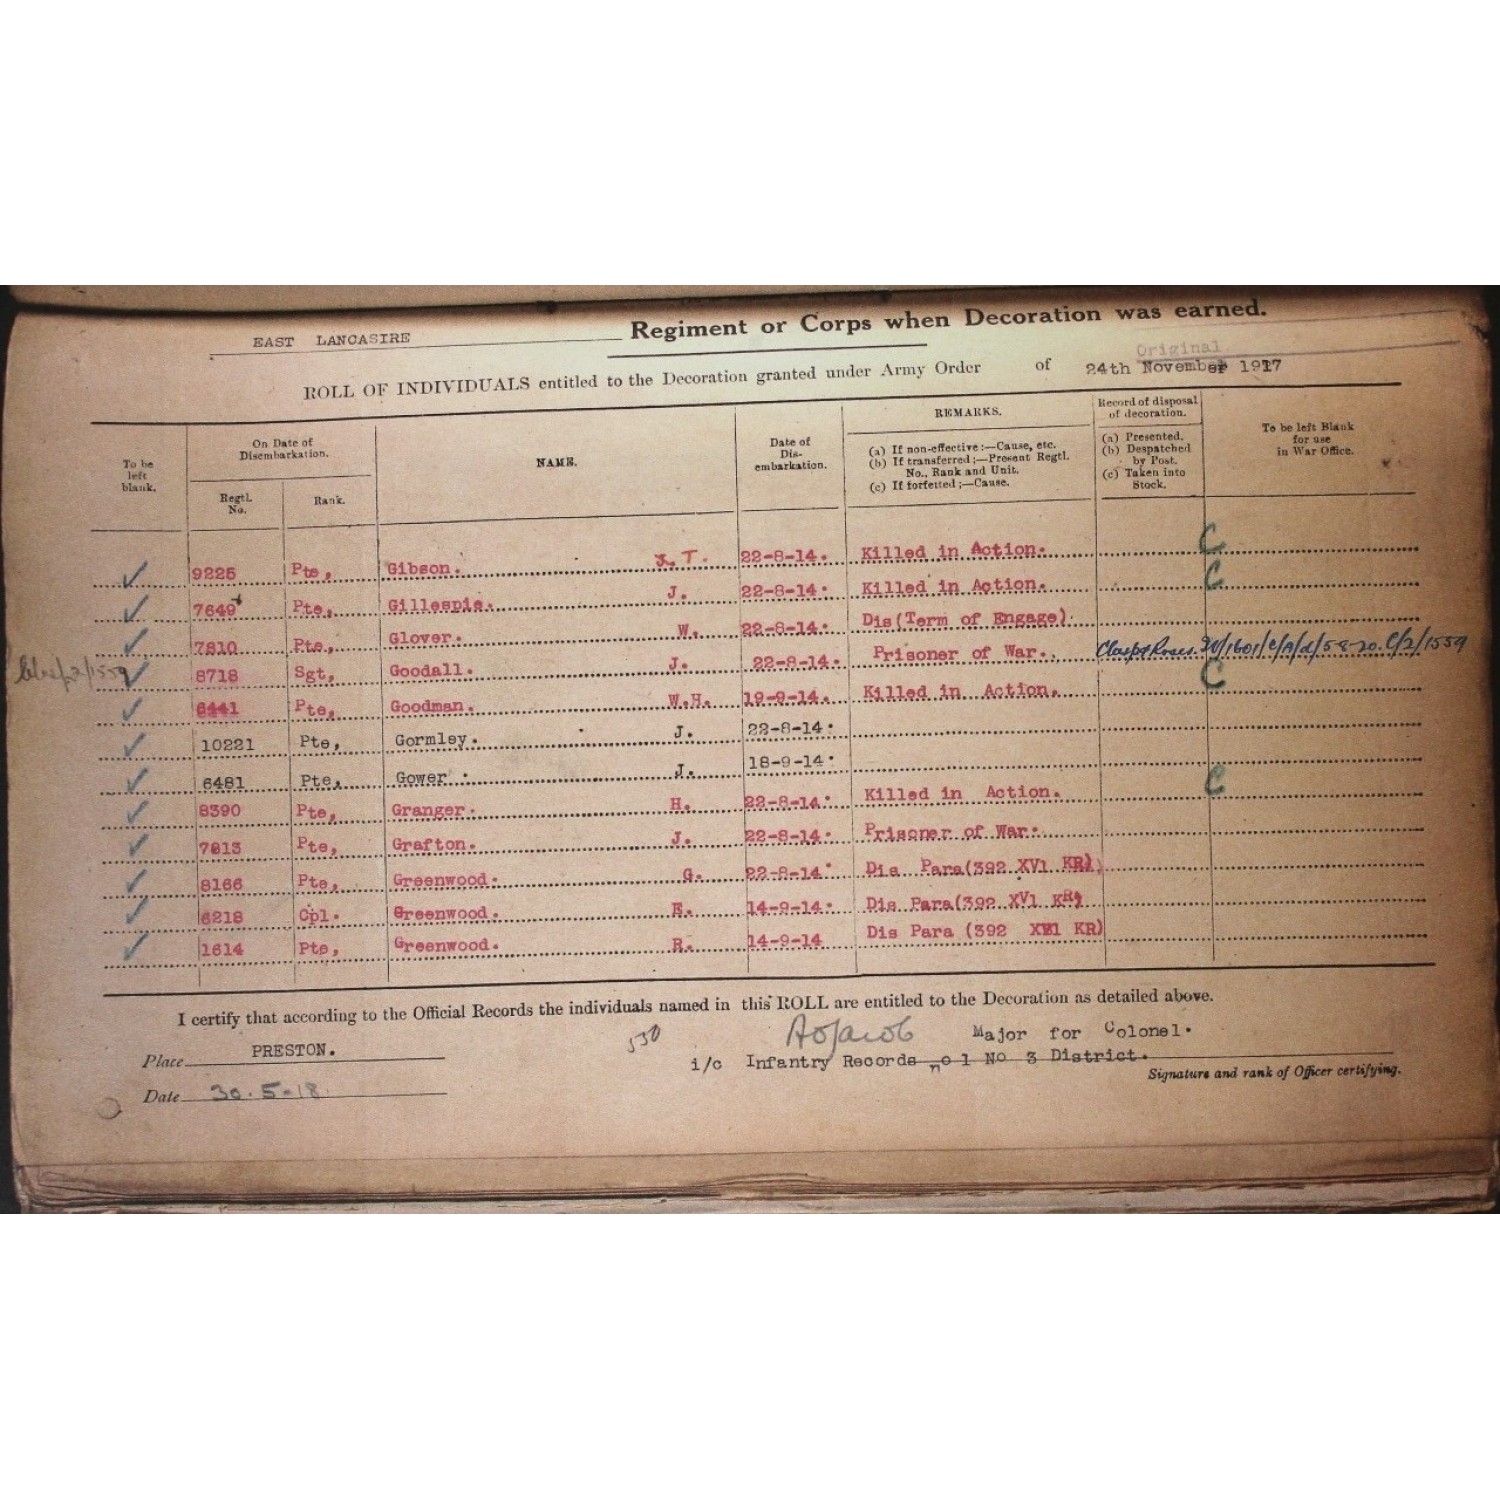 EAST LANCASIRE Regiment or Corps when Decoration was earned.
Original
ROLL OF INDIVIDUALS entitled to the Decoration granted under Army Order of 24th November 1917
To be left blank.
On Date of Disembarkation.
Regtl. No.
Rank.
NAME.
Date of Dis-embarkation.
REMARKS.
(a) If non-effective :—Cause, etc.
(b) If transferred ;—Present Regtl. No., Rank and Unit.
(c) If forfetted ;—Cause.
Record of disposal of decoration.
(a) Presented.
(b) Despatched by Post.
(c) Taken into Stock.
To be left Blank for use in War Office.
9225 Pte, Gibson. T. 22-8-14. Killed in Action. C
7649 Pte, Gillespie. J. 22-8-14. Killed in Action. C
7810 Pte, Glover. W. 22-8-14. Dis(Term of Engage).
8718 Sgt, Goodall. J. 22-8-14. Prisoner of War. Clasp & Roses. /1601/ 5-8-20. C/2/1559
6441 Pte, Goodman. W.H. 19-9-14. Killed in Action. C
10221 Pte, Gormley. J. 22-8-14.
6481 Pte, Gower. J. 18-9-14.
8390 Pte, Granger. H. 22-8-14. Killed in Action. C
7813 Pte, Grafton. J. 22-8-14. Prisoner of War.
8166 Pte, Greenwood. G. 22-8-14. Dis Para(392 XV1 KR)
6218 Cpl. Greenwood. E. 14-9-14. Dis Para(392 XV1 KR)
1614 Pte, Greenwood. R. 14-9-14 Dis Para (392 KR)
I certify that according to the Official Records the individuals named in this ROLL are entitled to the Decoration as detailed above.
530
Major for Colonel.
Place PRESTON.
i/c Infantry Records No 3 District.
Signature and rank of Officer certifying.
Date 30.5-18.